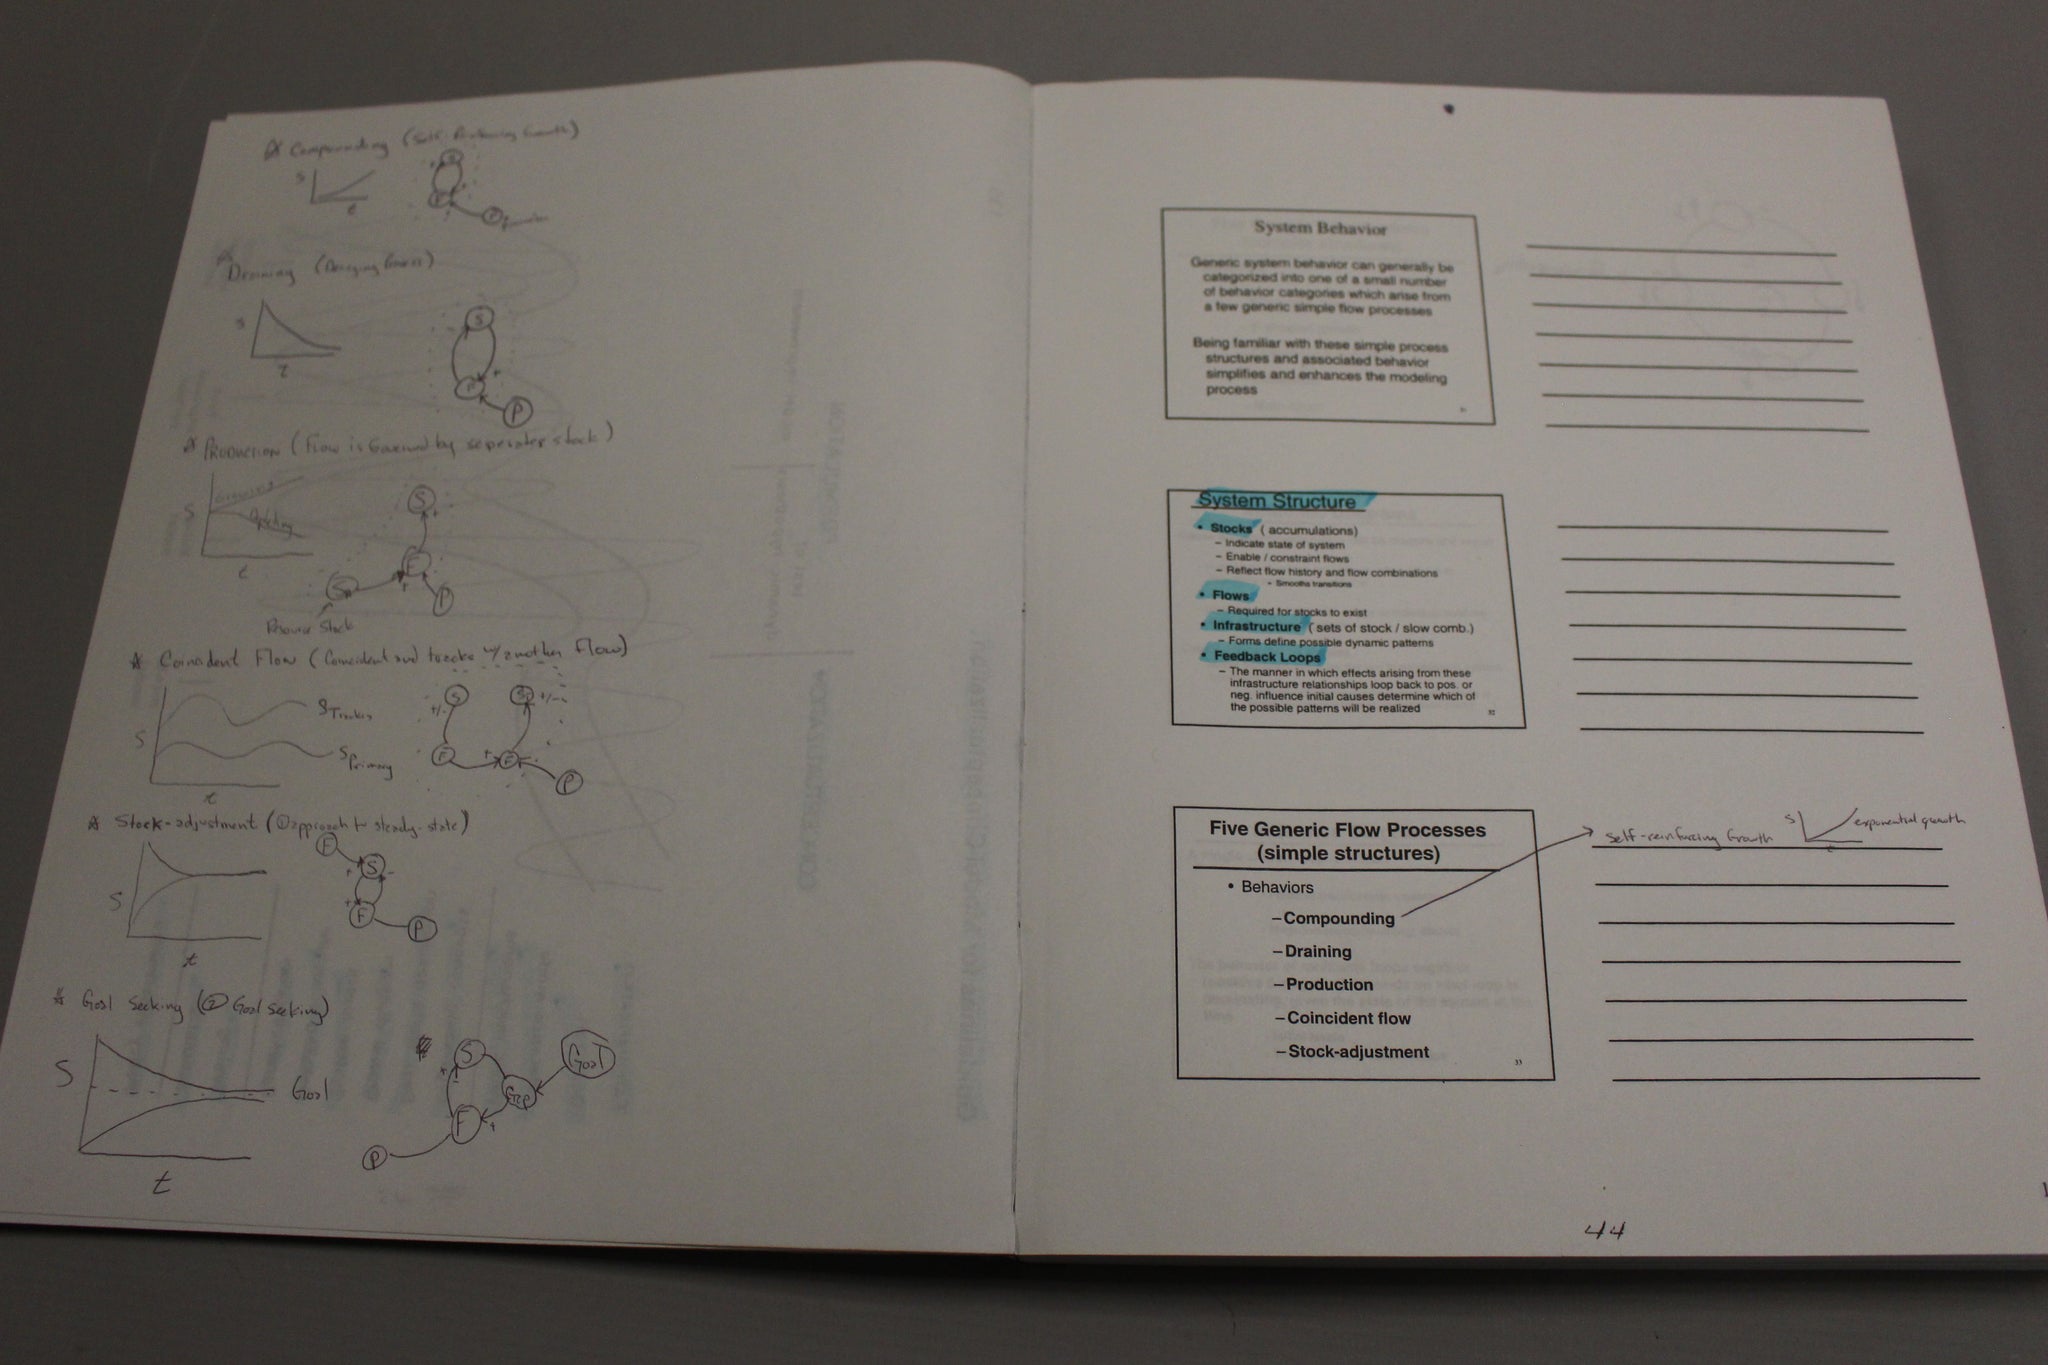 ☆ Compounding (Self-Reinforcing Growth)
S
t
Draining (Decaying
S
t
S
F
P
☆ PRODUCTION (Flow is Governed by seperates stock)
Growing
S
Depleting
t
S
+
F
+
S
P
Resource Stock
☆ Coincident Flow (Coincident and tracks w/ another flow)
S Tracking
S
S Primary
t
S
+/-
S
+/-
F
+
F
P
☆ Stock-adjustment (① approach to steady-state)
S
t
F
S
+
-
+
F
P
☆ Goal Seeking (② Goal seeking)
S
Goal
t
S
Goal
Gap
+
-
F
+
P
System Behavior
Generic system behavior can generally be
categorized into one of a small number
of behavior categories which arise from
a few generic simple flow processes
Being familiar with these simple process
structures and associated behavior
simplifies and enhances the modeling
process
31
System Structure
• Stocks ( accumulations)
– Indicate state of system
– Enable / constraint flows
– Reflect flow history and flow combinations
• Smooths transitions
• Flows
– Required for stocks to exist
• Infrastructure ( sets of stock / slow comb.)
– Forms define possible dynamic patterns
• Feedback Loops
– The manner in which effects arising from these
infrastructure relationships loop back to pos. or
neg. influence initial causes determine which of
the possible patterns will be realized
32
Five Generic Flow Processes
(simple structures)
• Behaviors
– Compounding
– Draining
– Production
– Coincident flow
– Stock-adjustment
33
Self-reinforcing Growth
S
t
exponential growth
44